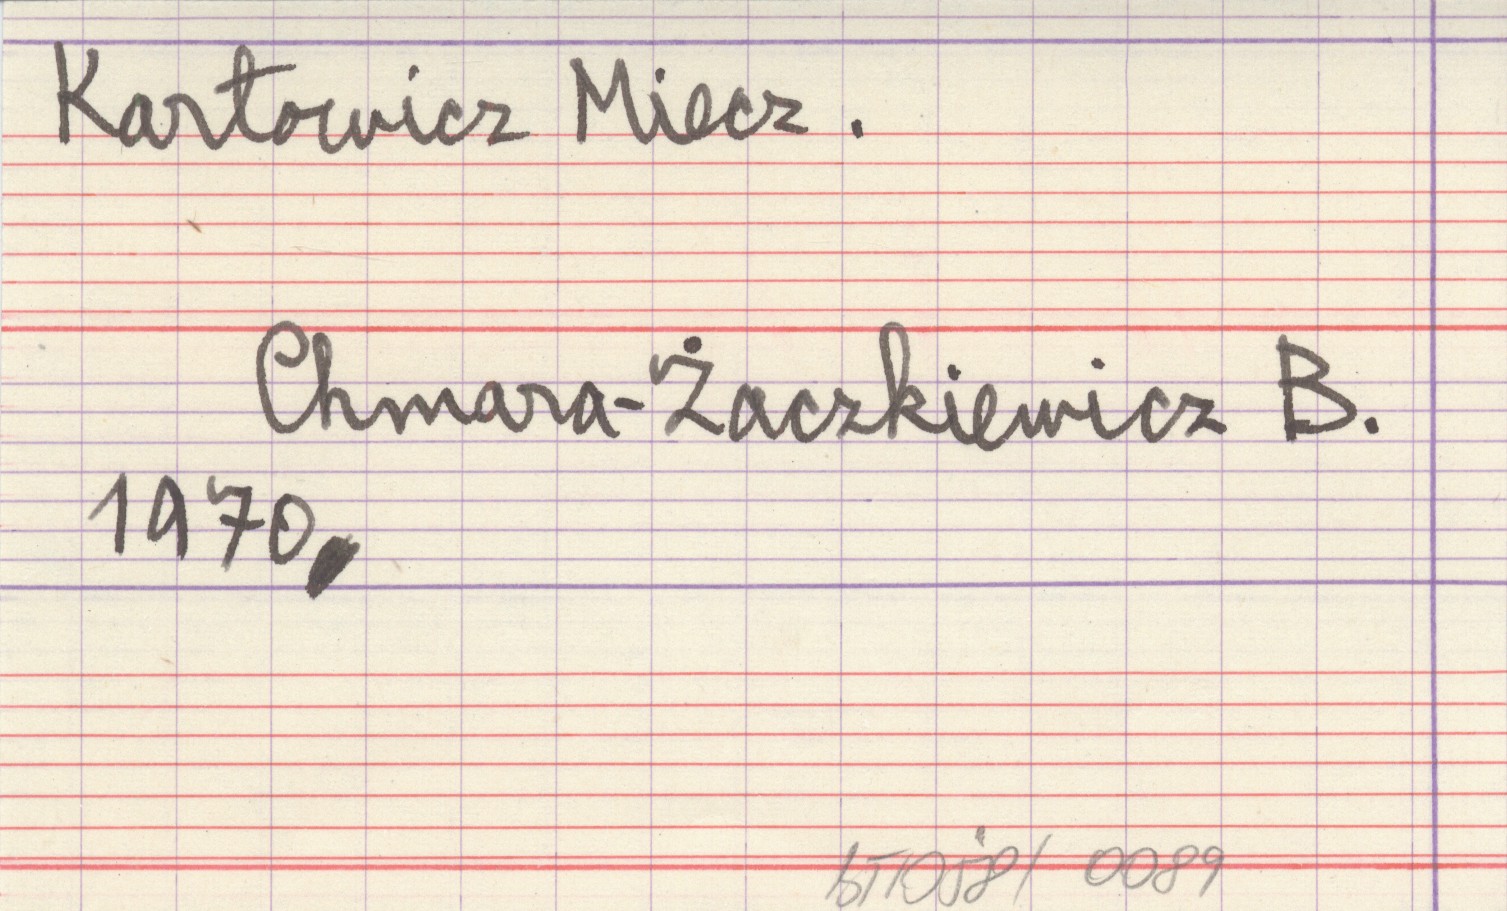 Karłowicz Miecz.
Chmara-Żaczkiewicz B.
1970,
0089